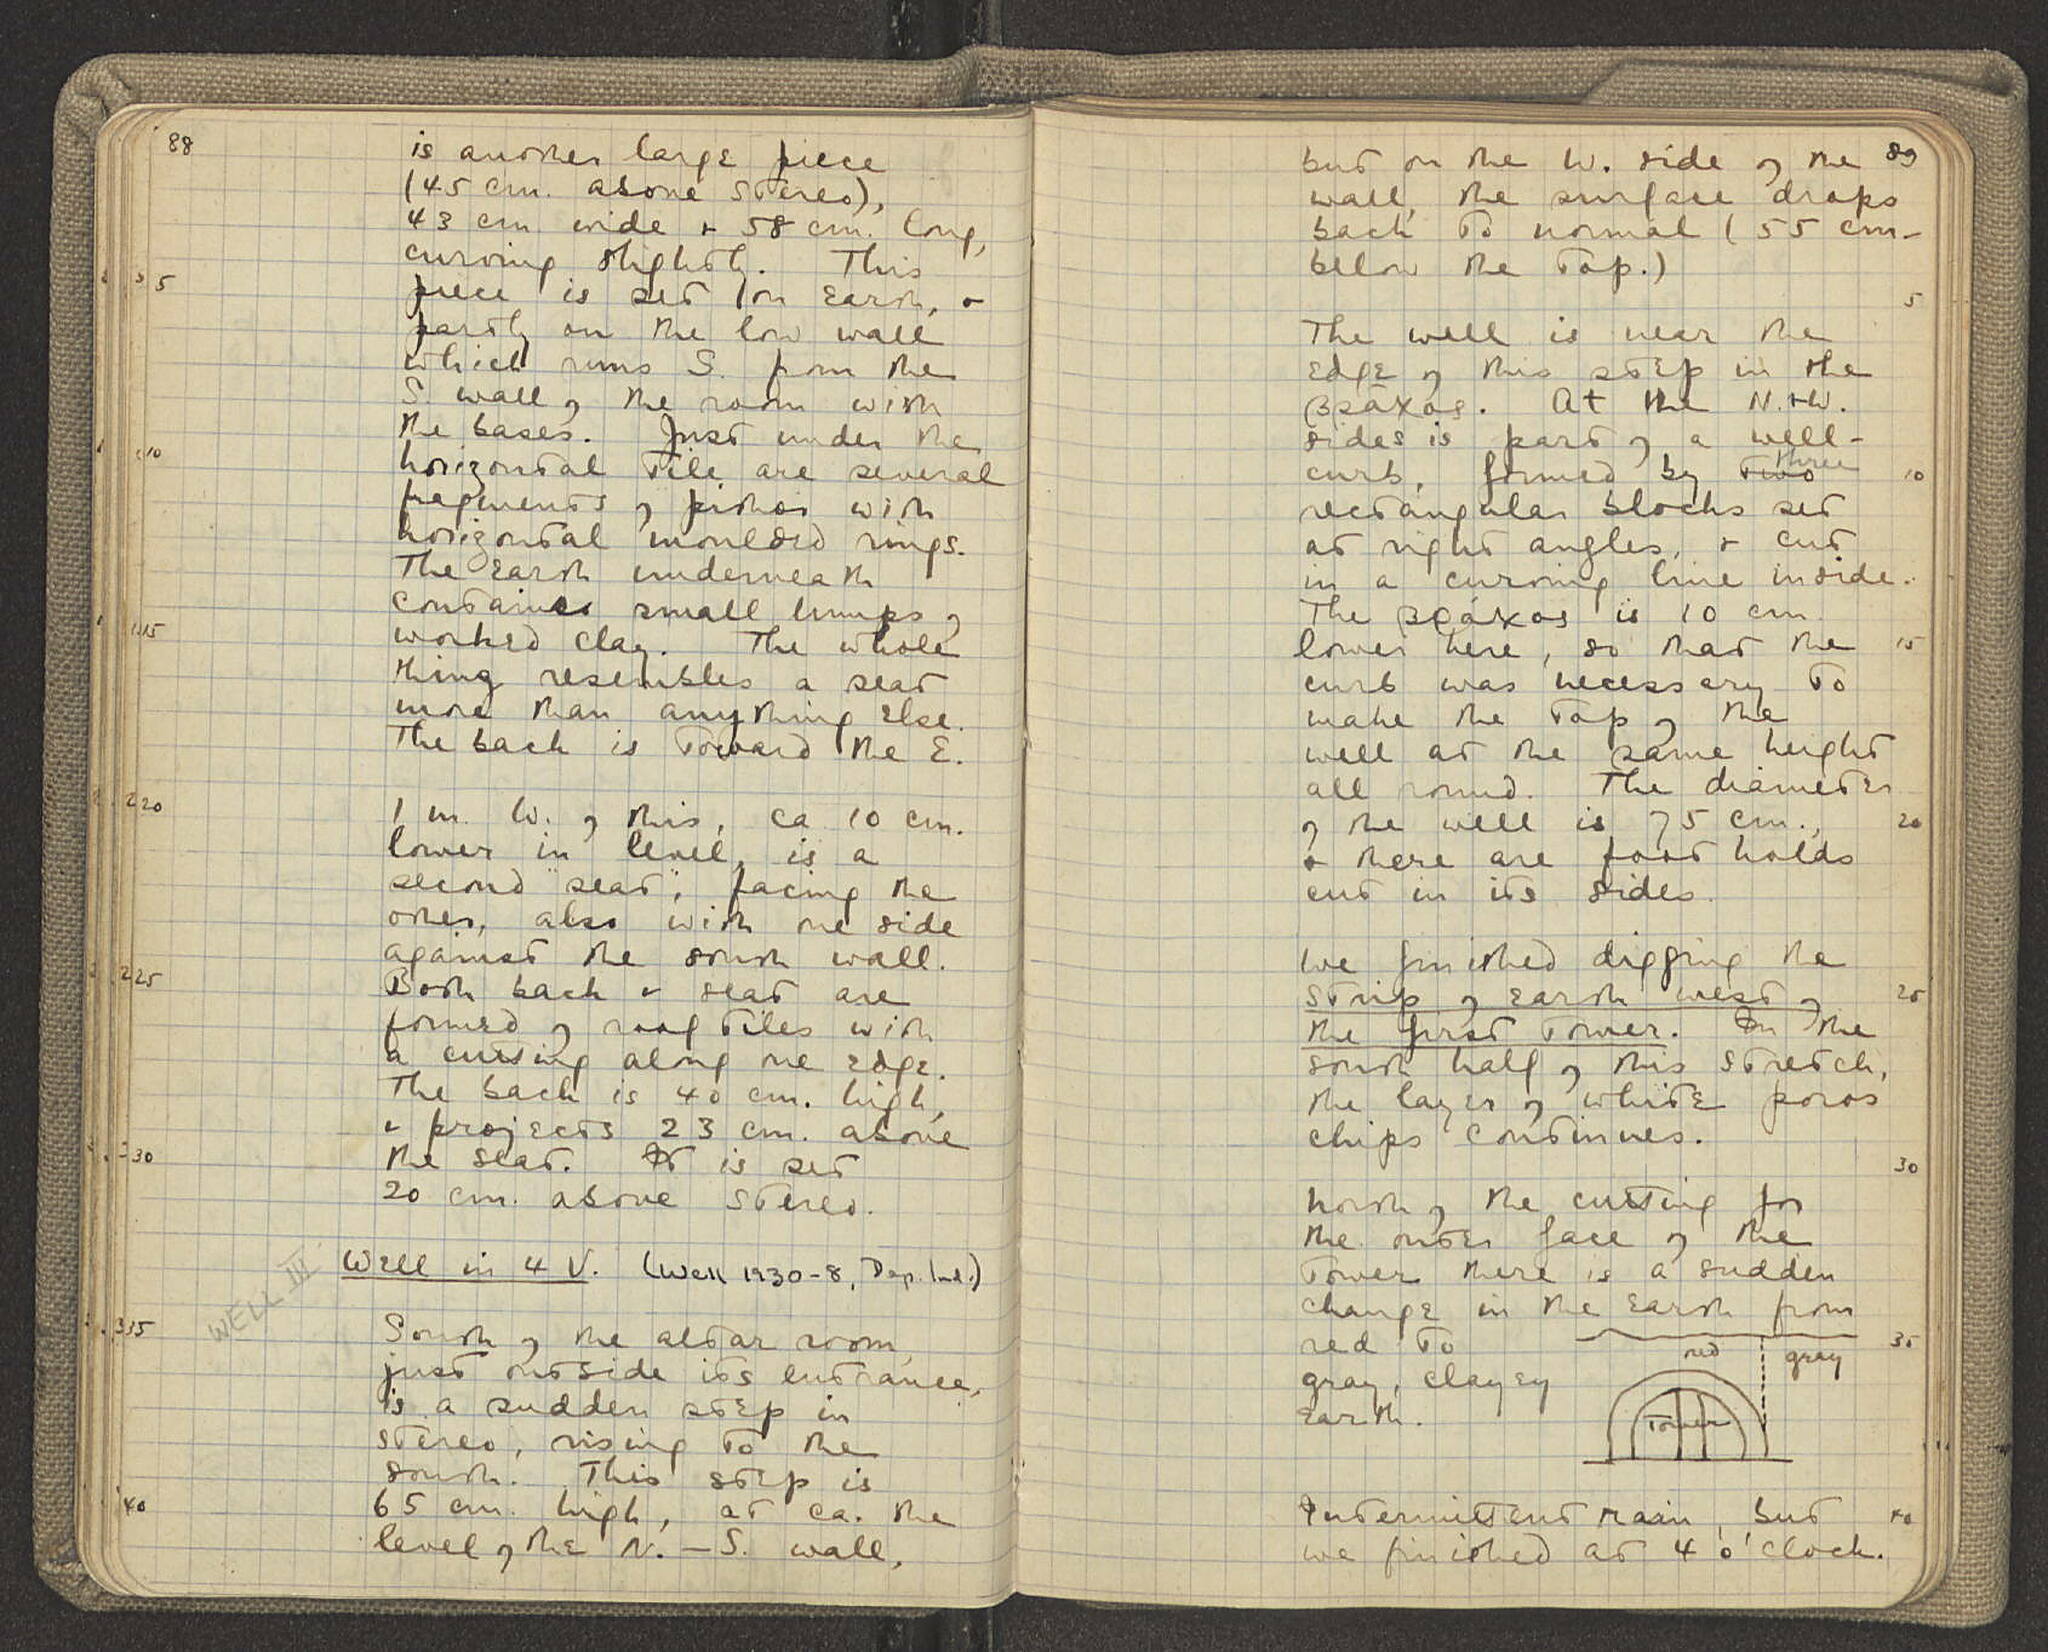 88
is another large piece
(45 cm. above stereo),
43 cm wide + 58 cm. long,
curving slightly. This
5
piece is set on Earth, +
partly on the low wall
which runs S. from the
S. wall of the room with
the bases. Just under the
10
horizontal tile are several
fragments of pithoi with
horizontal moulded rings.
The Earth underneath
contains small lumps of
15
worked clay. The whole
thing resembles a seat
more than anything else.
The back is toward the E.
20
1 m W. of this, ca 10 cm.
lower in level, is a
second "seat", facing the
other, also with one side
against the south wall.
25
Both back + seat are
formed of roof tiles with
a cutting along one edge.
The back is 40 cm. high,
+ projects 23 cm. above
30
the seat. It is set
20 cm. above stereo.
WELL III
Well in 4 V. (Well 1930-8, Dep. Ind.)
35
South of the altar room,
just outside its entrance,
is a sudden step in
stereo, rising to the
south. This step is
40
65 cm. high, at ca. the
level of the N.-S. wall,
89
but on the W. side of the
wall, the surface drops
back to normal (55 cm-
below the top.)
5
The well is near the
edge of this step in the
βράχος. At the N.+W.
sides is part of a well-
curb, formed by two three
10
rectangular blocks set
at right angles, + cut
in a curving line inside.
The βράχος is 10 cm
lower here, so that the
15
curb was necessary to
make the top of the
well at the same height
all round. The diameter
of the well is 75 cm.,
20
+ there are foot holds
cut in its sides.
We finished digging the
strip of earth west of
25
the first tower. In the
south half of this stretch,
the layer of white poros
chips continues.
30
North of the cutting for
the outer face of the
tower there is a sudden
change in the Earth from
red to
35
gray, clayey
Earth.
red
gray
Tower
Intermittent rain, but
40
we finished at 4 o'clock.